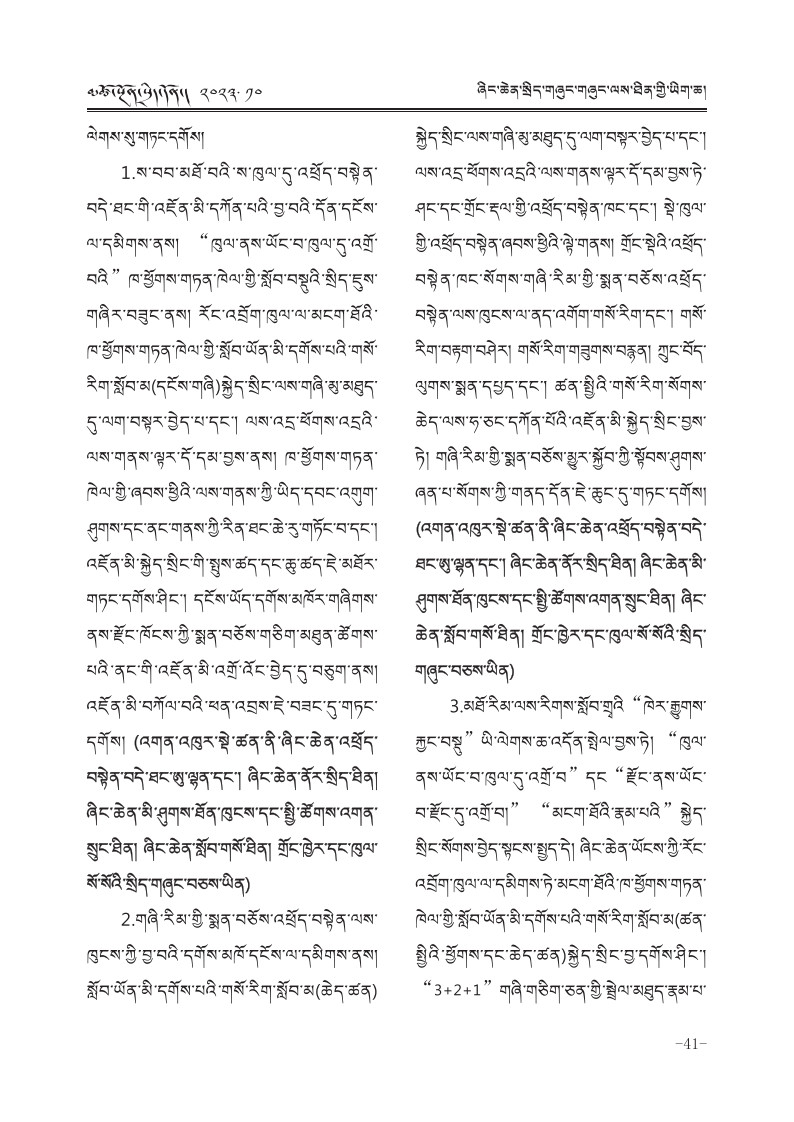 ༢༠༢༣.༡༠
ཞིང་ཆེན་སྲིད་གཞུང་གཞུང་ལས་ཐིན་གྱི་ཡིག་ཆ།
ལེགས་སུ་གཏང་དགོས།
1.ས་བབ་མཐོ་བའི་ས་ཁུལ་དུ་འཕྲོད་བསྟེན་
བདེ་ཐང་གི་འཛོན་མི་དཀོན་པའི་བྱ་བའི་དོན་དངོས་
ལ་དམིགས་ནས། “ཁུལ་ནས་ཡོང་བ་ཁུལ་དུ་འགྲོ་
བའི”ཁ་ཕྱོགས་གཏན་ཁེལ་གྱི་སློབ་བསྡུའི་སྲིད་ཇུས་
གཞིར་བཟུང་ནས། རོང་འབྲོག་ཁུལ་ལ་མངག་ཐོའི་
ཁ་ཕྱོགས་གཏན་ཁེལ་གྱི་སློབ་ཡོན་མི་དགོས་པའི་གསོ་
རིག་སློབ་མ(དངོས་གཞི)སྐྱེད་སྲིང་ལས་གཞི་མུ་མཐུད་
དུ་ལག་བསྟར་བྱེད་པ་དང་། ལས་འདྲ་ཕོགས་འདྲའི་
ལས་གནས་ལྟར་དོ་དམ་བྱས་ནས། ཁ་ཕྱོགས་གཏན་
ཁེལ་གྱི་ཞབས་ཕྱིའི་ལས་གནས་ཀྱི་ཡིད་དབང་འགུག་
ཤུགས་དང་ནང་གནས་ཀྱི་རིན་ཐང་ཆེ་རུ་གཏོང་བ་དང་།
འཛོན་མི་སྐྱེད་སྲིང་གི་སྤུས་ཚད་དང་ཆུ་ཚད་ཇེ་མཐོར་
གཏང་དགོས་ཤིང་། དངོས་ཡོད་དགོས་མཁོར་གཞིགས་
ནས་རྫོང་ཁོངས་ཀྱི་སྨན་བཅོས་གཅིག་མཐུན་ཚོགས་
པའི་ནང་གི་འཛོན་མི་འགྲོ་འོང་བྱེད་དུ་བཅུག་ནས།
འཛོན་མི་བཀོལ་བའི་ཕན་འབྲས་ཇེ་བཟང་དུ་གཏང་
དགོས། (འགན་འཁུར་སྡེ་ཚན་ནི་ཞིང་ཆེན་འཕྲོད་
བསྟེན་བདེ་ཐང་ཨུ་ལྷན་དང་། ཞིང་ཆེན་ནོར་སྲིད་ཐིན།
ཞིང་ཆེན་མི་ཤུགས་ཐོན་ཁུངས་དང་སྤྱི་ཚོགས་འགན་
སྲུང་ཐིན། ཞིང་ཆེན་སློབ་གསོ་ཐིན། གྲོང་ཁྱེར་དང་ཁུལ་
སོ་སོའི་སྲིད་གཞུང་བཅས་ཡིན)
2.གཞི་རིམ་གྱི་སྨན་བཅོས་འཕྲོད་བསྟེན་ལས་
ཁུངས་ཀྱི་བྱ་བའི་དགོས་མཁོ་དངོས་ལ་དམིགས་ནས།
སློབ་ཡོན་མི་དགོས་པའི་གསོ་རིག་སློབ་མ(ཆེད་ཚན)
སྐྱེད་སྲིང་ལས་གཞི་མུ་མཐུད་དུ་ལག་བསྟར་བྱེད་པ་དང་།
ལས་འདྲ་ཕོགས་འདྲའི་ལས་གནས་ལྟར་དོ་དམ་བྱས་ཏེ་
ཤང་དང་གྲོང་རྡལ་གྱི་འཕྲོད་བསྟེན་ཁང་དང་། སྡེ་ཁུལ་
གྱི་འཕྲོད་བསྟེན་ཞབས་ཕྱིའི་ལྟེ་གནས། གྲོང་སྡེའི་འཕྲོད་
བསྟེན་ཁང་སོགས་གཞི་རིམ་གྱི་སྨན་བཅོས་འཕྲོད་
བསྟེན་ལས་ཁུངས་ལ་ནད་འགོག་གསོ་རིག་དང་། གསོ་
རིག་བརྟག་བཤེར། གསོ་རིག་གཟུགས་བརྙན། ཀྲུང་བོད་
ལུགས་སྨན་དཔྱད་དང་། ཚན་སྤྱིའི་གསོ་རིག་སོགས་
ཆེད་ལས་ཧ་ཅང་དཀོན་པོའི་འཛོན་མི་སྐྱེད་སྲིང་བྱས་
ཏེ། གཞི་རིམ་གྱི་སྨན་བཅོས་མྱུར་སྐྱོབ་ཀྱི་སྟོབས་ཤུགས་
ཞན་པ་སོགས་ཀྱི་གནད་དོན་ཇེ་ཆུང་དུ་གཏང་དགོས།
(འགན་འཁུར་སྡེ་ཚན་ནི་ཞིང་ཆེན་འཕྲོད་བསྟེན་བདེ་
ཐང་ཨུ་ལྷན་དང་། ཞིང་ཆེན་ནོར་སྲིད་ཐིན། ཞིང་ཆེན་མི་
ཤུགས་ཐོན་ཁུངས་དང་སྤྱི་ཚོགས་འགན་སྲུང་ཐིན། ཞིང་
ཆེན་སློབ་གསོ་ཐིན། གྲོང་ཁྱེར་དང་ཁུལ་སོ་སོའི་སྲིད་
གཞུང་བཅས་ཡིན)
3.མཐོ་རིམ་ལས་རིགས་སློབ་གྲྭའི“ཁེར་རྒྱུགས་
རྐྱང་བསྡུ”ཡི་ལེགས་ཆ་འདོན་སྤེལ་བྱས་ཏེ། “ཁུལ་
ནས་ཡོང་བ་ཁུལ་དུ་འགྲོ་བ”དང“རྫོང་ནས་ཡོང་
བ་རྫོང་དུ་འགྲོ་བ།” “མངག་ཐོའི་རྣམ་པའི”སྐྱེད་
སྲིང་སོགས་བྱེད་སྟངས་སྤྱད་དེ། ཞིང་ཆེན་ཡོངས་ཀྱི་རོང་
འབྲོག་ཁུལ་ལ་དམིགས་ཏེ་མངག་ཐོའི་ཁ་ཕྱོགས་གཏན་
ཁེལ་གྱི་སློབ་ཡོན་མི་དགོས་པའི་གསོ་རིག་སློབ་མ(ཚན་
སྤྱིའི་ཕྱོགས་དང་ཆེད་ཚན)སྐྱེད་སྲིང་བྱ་དགོས་ཤིང་།
“3+2+1”གཞི་གཅིག་ཅན་གྱི་སྦྲེལ་མཐུད་རྣམ་པ་
-41-